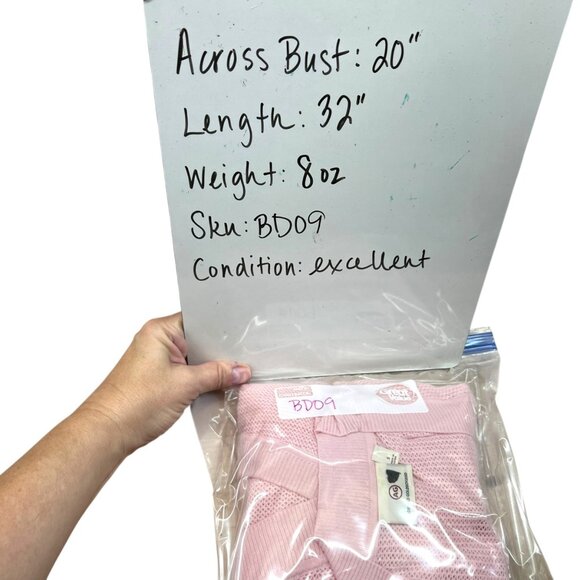 Across Bust: 20"
Length: 32"
Weight: 8 oz
Sku: BD09
Condition: excellent
BD09
AG